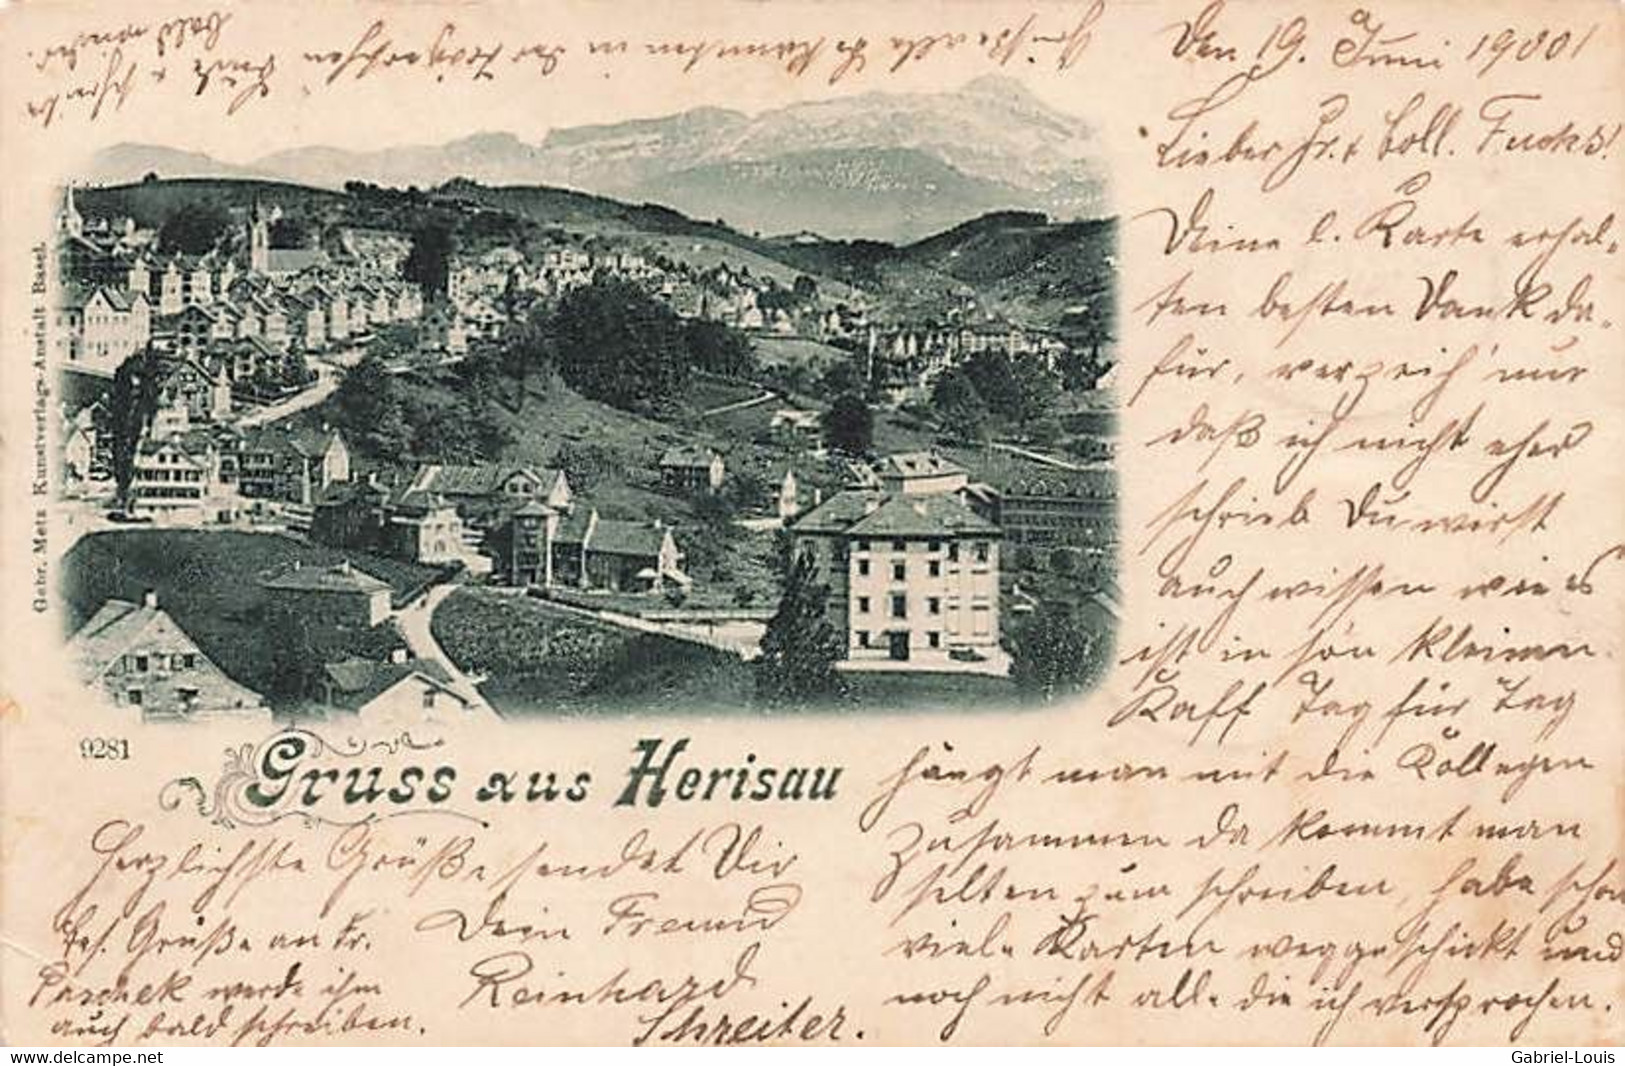 Den 19. Juni 1900!
Lieber Fr. & Coll. Fuchs!
Deine l. Karte erhal-
ten besten Dank da-
für, verzeih' nur
daß ich nicht eher
schrieb Du wirst
auch wissen wie es
ist in so'n kleinen
Kaff Tag für Tag
hängt man mit die Collegen
zusammen da kommt man
selten zum schreiben, habe schon
viele Karten weggeschickt und
noch nicht alle die ich versprochen.
Herzlichste Grüße sendet Dir
Dein Freund
Reinhard
Schreiter.
Bes. Grüße an Fr.
Paschek werde ihm
auch bald schreiben.
Grüße alle Bekannten in der
bald wieder.
Gruss aus Herisau
9281
Gebr. Metz Kunstverlags-Anstalt Basel.
delcampe.net
Gabriel-Louis